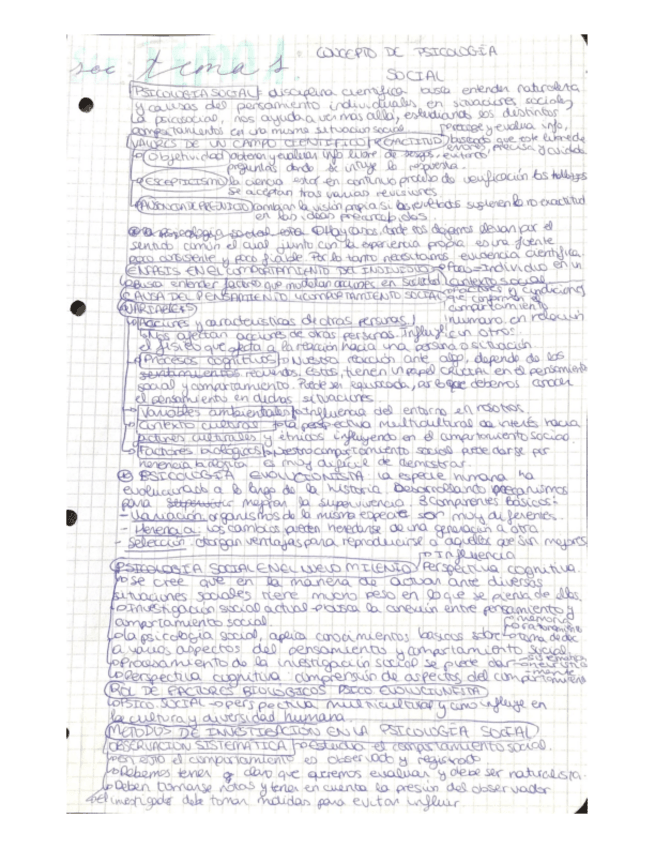 soc tema 1. CONCEPTO DE PSICOLOGIA
SOCIAL
PSICOLOGIA SOCIAL disciplina cientifica busca entender naturaleza
y causas del pensamiento individuales, en situaciones sociales,
La psicosocial, nos ayuda a ver mas alla, estudiando los distintos
comportamientos en una misma situacion social.
VALORES DE UN CAMPO CIENTIFICO EXACTITUD recoge y evalua info,
buscando que este libre de
errores, precisa y cuidada
Objetividad obtener y evaluar info libre de sesgos,
preguntas donde se influye la respuesta.
ESCEPTICISMO la ciencia esta en continuo proceso de verificación los
se aceptan tras varias revisiones.
cambian la visión propia si los resultados sugieren la no exactitud
en las ideas preconcebidas
Psicologia social Hay cosas donde nos dejamos llevar por el
sentido común el cual junto con la experiencia propia es una fuente
poco consistente y poco fiable. Por lo tanto necesitamos evidencia cientifica.
ENFASIS EN EL COMPORTAMIENTO DEL INDIVIDUO Individuo en un
contexto social
busca entender factores que modulan acciones en sociedad
CAUSA DEL PENSAMIENTO Y COMPORTAMIENTO SOCIAL factores y condiciones
que conforman el
comportamiento
humano en relación
con otros.
VARIABLES
Acciones y caracteristicas de otras personas
Nos afectan acciones de otras personas. Influye
el fisico que afecta a la reacción hacia una persona o situación.
Procesos cognitivos Nuestra reacción ante algo, depende de los
recuerdos, estos, tienen un papel crucial en el pensamiento
social y comportamiento. Puede ser equivocada, por lo que debemos conocer
el pensamiento en dichas situaciones.
Variables ambientales Influencia del entorno en nosotros.
Contexto cultural la perspectiva multicultural da interés hacia
factores culturales y étnicos influyendo en el comportamiento social.
Factores biologicos Nuestro comportamiento social puede darse por
herencia biologica. es muy dificil de demostrar.
PSICOLOGIA EVOLUCIONISTA la especie humana ha
evolucionado a lo largo de la historia. Desarrollando mecanismos
para mejorar la supervivencia. 3 Componentes basicos:
- Variación organismos de la misma especie son muy diferentes.
- Herencia: Los cambios pueden heredarse de una generación a otra.
- Selección: otorgan ventajas para reproducirse a aquellos que son mejores
Influencia
PSICOLOGIA SOCIAL EN EL NUEVO MILENIO Perspectiva cognitiva.
se cree que en la manera de actuar ante diversos
situaciones sociales tiene mucho peso en lo que se piensa de ellas.
Investigación social actual busca la conexion entre pensamiento y
comportamiento social. memoria
razonamiento
la psicologia social, aplica conocimientos basicos sobre toma de dec
a varios aspectos del pensamiento y comportamiento social.
Procesamiento de la investigación social se puede dar
Perspectiva cognitiva comprensión de aspectos del comportamiento
ROL DE FACTORES BIOLOGICOS PSICO EVOLUCIONISTA
PSICO. SOCIAL perspectiva multicultural y como influye en
la cultura y diversidad humana.
METODOS DE INVESTIGACION EN LA PSICOLOGIA SOCIAL
OBSERVACION SISTEMATICA Estudio el comportamiento social.
en esto el comportamiento es observado y registrado
Debemos tener claro que queremos evaluar y debe ser naturalista.
Deben tomarse notas y tener en cuenta la presion del observador
el investigador debe tomar medidas para evitar influir.